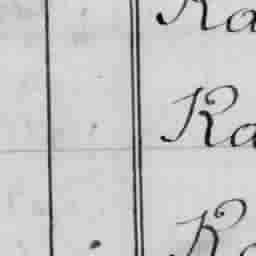 Ka
Ka
Ka